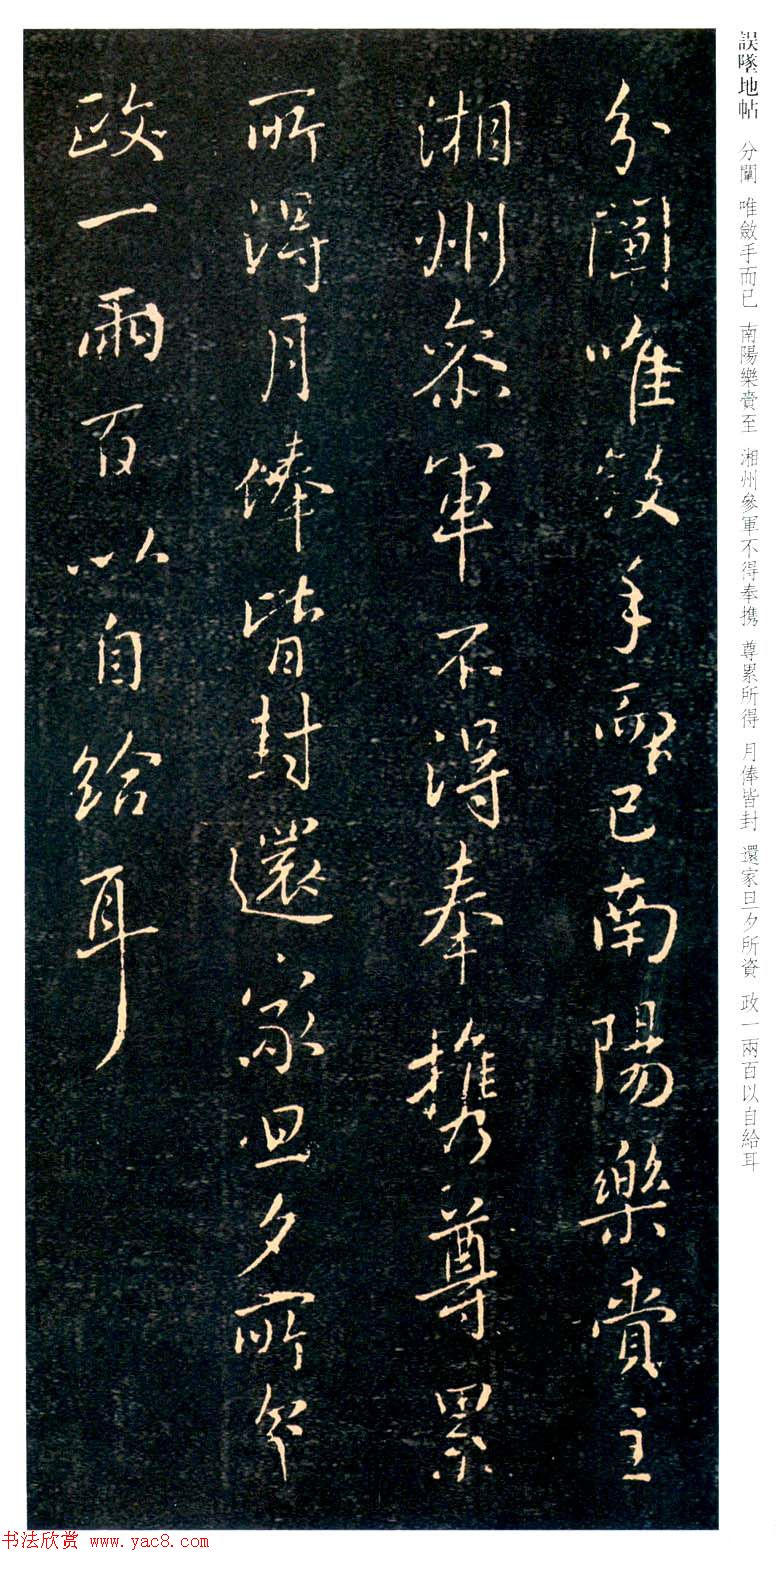 誤墜地帖 分闈 唯斂手而已 南陽樂賞至 湘州參軍不得奉携 尊累所得 月俸皆封 還家旦夕所資 政一兩百以自給耳
分闈唯斂手而已南陽樂賞主
湘州參軍不得奉携尊累
所得月俸皆封還家旦夕所
政一兩百以自給耳
书法欣赏 www.yac8.com